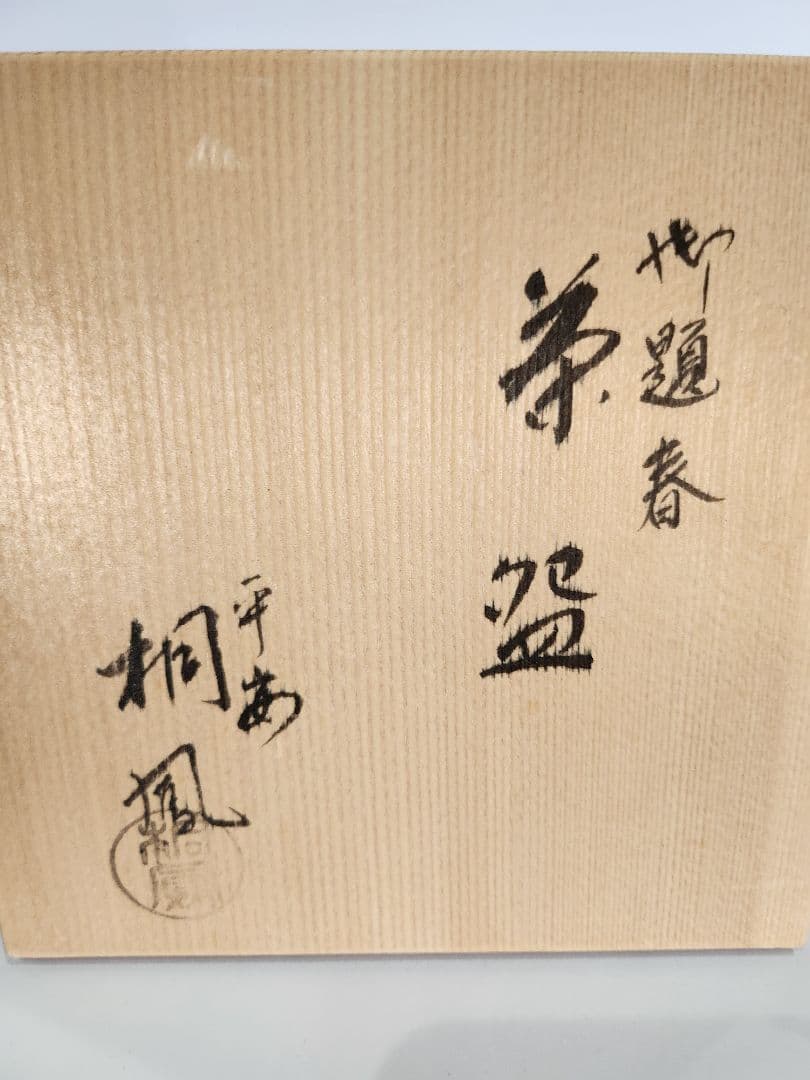 御題春
茶盌
平安
桐鳳